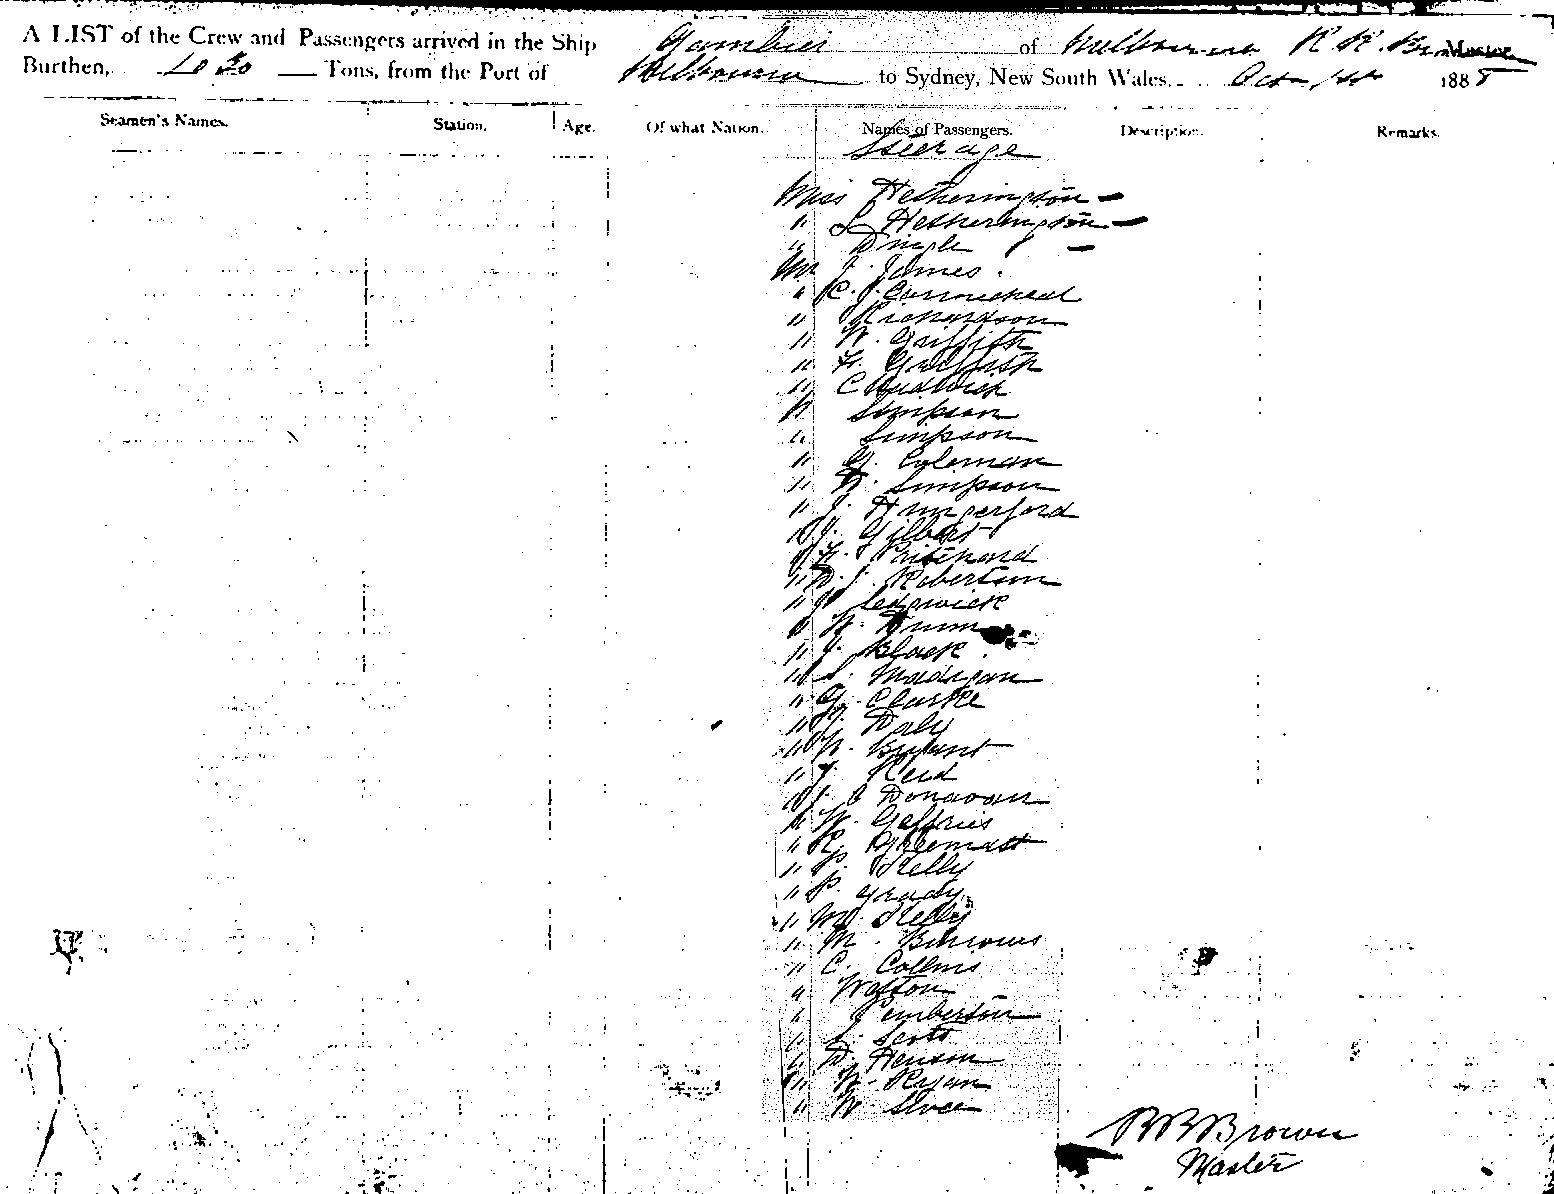 A LIST of the Crew and Passengers arrived in the Ship Gambier of Melbourne Master
Burthen, Tons, from the Port of Melbourne to Sydney, New South Wales, Oct 1st 1888
Seamen's Names. Station. Age. Of what Nation. Names of Passengers. Description. Remarks.
Steerage
Miss Hetherington -
" L Hetherington -
" Dingle -
Mr J. James.
" C. J. Carmicheal
" Richardson
" W. Griffith
" Griffith
" Chadwick
" Simpson
" Simpson
" G. Coleman
" Simpson
" J. Hungerford
" J. Gilbert
" Pritchard
" D. J. Robertson
" Sedgwick
" W. Dunn
" J. Black
" S. Madigan
" G. Clarke
" Daly
" W. Bryant
" J. Reid
" J. Donavan
" W. Geffries
" R.
" P. Kelly
" P. Grady
" M. Kelly
" M. Burrows
" C. Collins
" Weston
" Pemberton
" Scott
" D. Henson
" W. Ryan
" W
R R Brown
Master